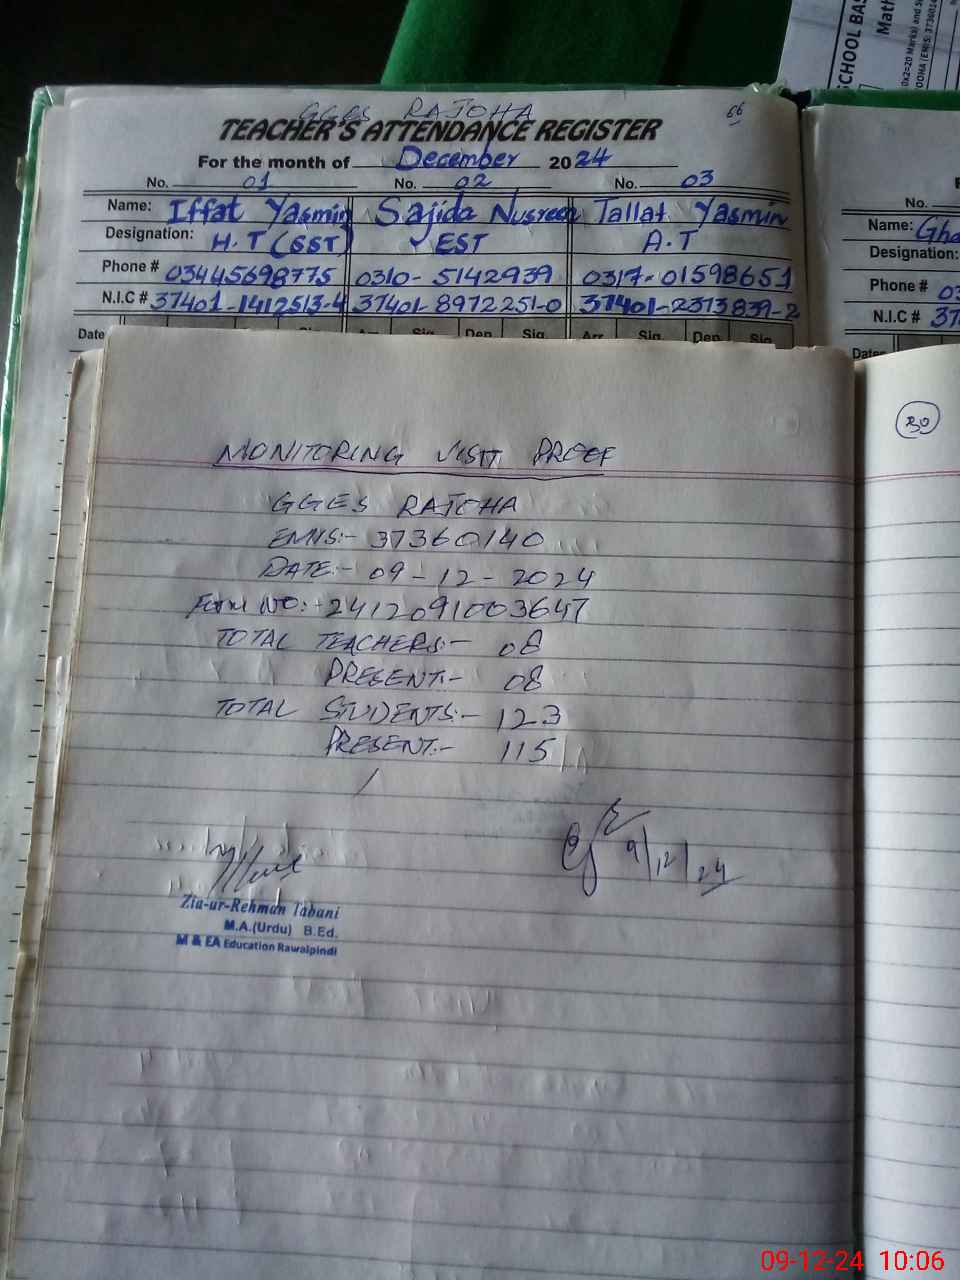 SCHOOL BAS
Math
0x2=20 Marks) and S
OOHA (EMIS: 3736014
GGES RAJOHA
66
TEACHER'S ATTENDANCE REGISTER
For the month of December 2024
No. 01 No. 02 No. 03
Name: Iffat Yasmin Sajida Nusreen Tallat Yasmin
Designation: H.T (SST) EST A.T
Phone # 03445698775 0310-5142939 0317-01598651
N.I.C # 37401-1412513-4 37401-8972251-0 37401-2373839-2
Date Arr. Sig. Dep. Sig. Arr. Sig. Dep. Sig.
No.
Name: Gha
Designation:
Phone # 03
N.I.C # 37
Date
30
MONITORING VISIT PROOF
GGES RAJOHA
EMIS:- 37360140
DATE:- 09-12-2024
Form NO:- 2412091003647
TOTAL TEACHERS:- 08
PRESENT:- 08
TOTAL STUDENTS:- 123
PRESENT:- 115
9/12/24
Zia-ur-Rehman Tabani
M.A.(Urdu) B.Ed.
M & EA Education Rawalpindi
09-12-24 10:06